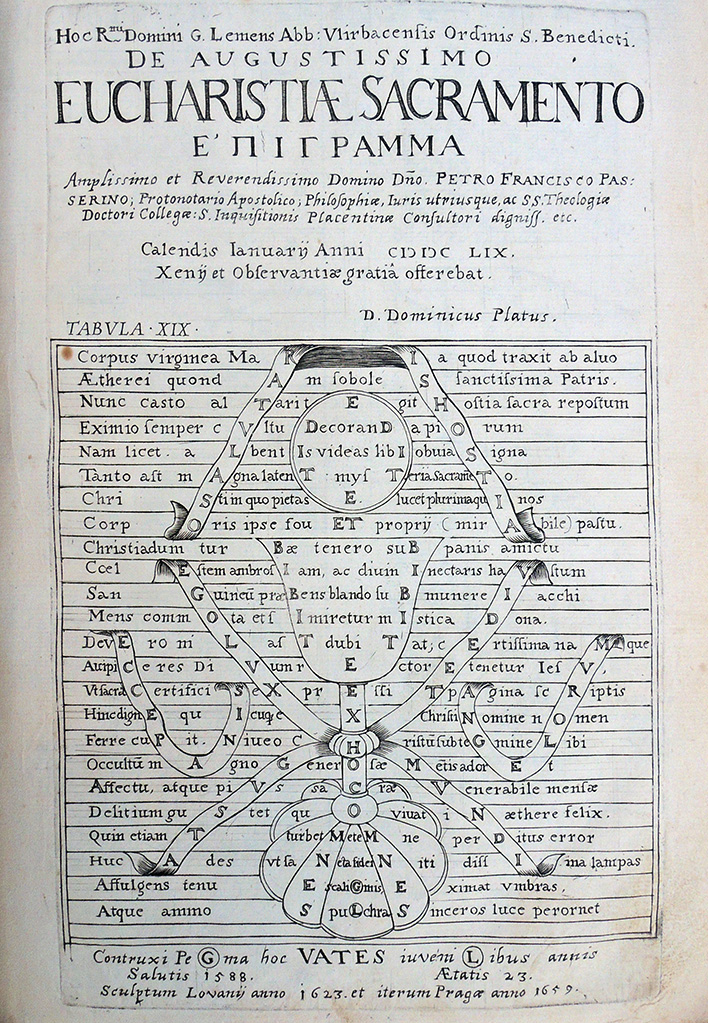 Hoc R.mi Domini G. Lemens Abb: Vlirbacensis Ordinis S. Benedicti.
DE AUGUSTISSIMO
EUCHARISTIÆ SACRAMENTO
E'ΠΙΓΡΑΜΜΑ
Amplissimo et Reverendissimo Domino Dño. PETRO FRANCISCO PAS:
SERINO; Protonotario Apostolico; Philosophiæ, Iuris utriusque, ac S.S. Theologiæ
Doctori Collegæ: S. Inquisitionis Placentinæ Consultori digniss. etc.
Calendis Ianuarij Anni CIƆIƆC LIX.
Xenij et Observantiæ gratiâ offerebat.
D. Dominicus Platus.
TABVLA · XIX ·
Corpus virginea Ma R I a quod traxit ab aluo
Ætherei quond A m sobole S sanctissima Patris.
Nunc casto al T arit E git H ostia sacra repostum
Eximio semper c V ltu DecoranD a pi O rum
Nam licet a L bent Is videas libI obuia S igna
Tanto ast m A gna laten T myst T eria Sacrame T o.
Chri S ti in quo pietas E lucet plurima qu I nos
Corp O ris ipse fou ET proprij (mir A bile) pastu.
Christiadum tur Bæ tenero suB panis amictu
Ccel E stem ambros I am, ac diuin I nectaris ha V stum
San G uineū præ Bens blando su B munere I acchi
Mens comm O ta ets I miretur m I stica D ona.
Dev E ro ni L as T dubi T at; c E rtissima na M que
Accipi C eres Di V um r E ctor E tenetur Ies V.
Vt sacra C ertifici S e X pr E ssi T p A gina sc R iptis
Hinc dign E qu I cuq;e X Christi N omine n O men
Ferre cu P it. N iueo C H ristū subte G mine L ibi
Occultū m A gno G ener O sæ M etis ador E t
Affectu, atque pi V s sa C ræ V enerabile mensæ
Delitium gu S tet qu O viuat i N æthere felix.
Quin etiam T turbet M ete M ne per D itus error
Huc A des vt sa N eta fidei N iti diss I ma lampas
Affulgens tenu E scali G inis E ximat vmbras,
Atque ammo S pu L chra S inceros luce perornet
Contruxi Pe G ma hoc VATES iuveni L ibus annis
Salutis 1588. Ætatis 23.
Sculptum Lovanij anno 1623. et iterum Pragæ anno 1659.